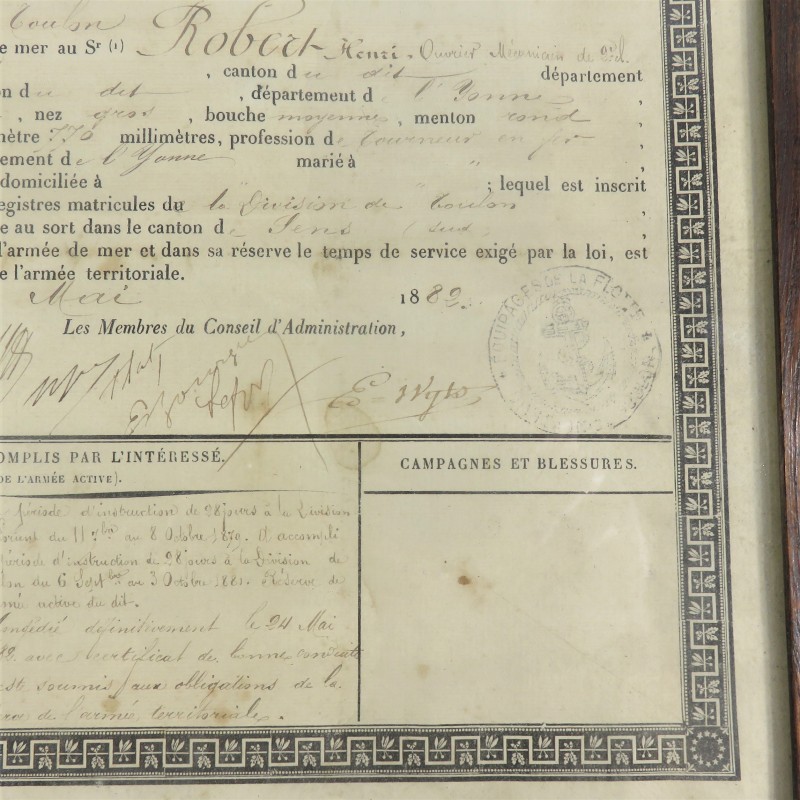 Toulon
de mer au Sr (1) Robert Henri, Ouvrier Mécanicien de
, canton du dit département
on du dit , département de l'Yonne
, nez gros , bouche moyenne, menton rond
mètre 770 millimètres, profession de tourneur en fer
ement de l'Yonne marié à "
domiciliée à " ; lequel est inscrit
egistres matricules du la Division de Toulon
e au sort dans le canton de Sens (sud)
l'armée de mer et dans sa réserve le temps de service exigé par la loi, est
e l'armée territoriale.
Mai 1882.
Les Membres du Conseil d'Administration,
ÉQUIPAGES DE LA FLOTTE
OMPLIS PAR L'INTÉRESSÉ.
DE L'ARMÉE ACTIVE).
CAMPAGNES ET BLESSURES.
période d'instruction de 28 jours à la Division
du 11 7bre au 8 Octobre 1879. Il accompli
période d'instruction de 28 jours à la Division de
on du 6 Septbre au 3 Octobre 1881. Réserve de
mée active du dit.
Congédié définitivement le 24 Mai
82 avec certificat de bonne conduite
este soumis aux obligations de la
de l'armée territoriale.